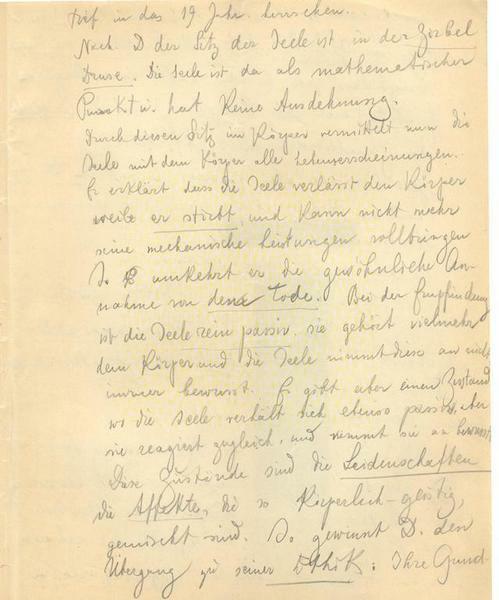 tief in das 19 Jahr. herrschen.
Nach D der Sitz der Seele ist in der Zirbel
Drüse. Die Seele ist da als mathematischer
Punkt u. hat Keine Ausdehnung.
Durch diesen Sitz im Körper vermittelt nun die
Seele mit dem Körper alle Lebenserscheinungen.
Er erklärt dass die Seele verlässt den Körper
weile er stirbt und kann nicht mehr
seine mechanische Leistungen vollbringen
So umkehrt er die gewöhnliche An-
nahme von dem Tode. Bei der Empfindung
ist die Seele rein passiv, sie gehört vielmehr
dem Körper und die Seele nimmt diese an nicht
immer bewusst. Er gibt aber einen Zustand
wo die Seele verhält sich ebenso passiv, aber
sie reagiert zugleich, und nimmt sie an bewusst
Diese Zustände sind die Leidenschaften
die Affekte, die so Körperlich-geistig,
gemischt sind. So gewinnt D. den
Übergang zu seiner Ethik: Ihre Grund-